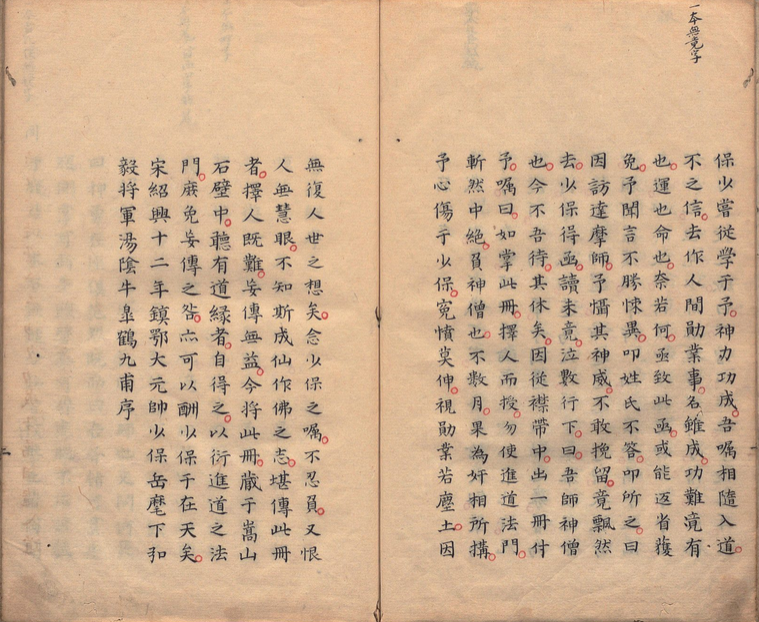 一本無竟字
保少嘗從學于予神力功成吾嘱相隨入道
不之信去作人間勛業事名雖成功難竟有
也運也命也奈若何亟致此函或能返省獲
免予聞言不勝悚異叩姓氏不答叩所之曰
因訪達摩師予懾其神威不敢挽留竟飄然
去少保得函讀未竟泣數行下曰吾師神僧
也今不吾待其休矣因從襟帶中出一冊付
予嘱曰如掌此冊擇人而授勿使進道法門
斬然中絶負神僧也不數月果為奸相所搆
予心傷于少保寃憤莫伸視勛業若塵土因
無復人世之想矣念少保之嘱不忍負又恨
人無慧眼不知斯成仙作佛之志堪傳此冊
者擇人既難妄傳無益今將此冊藏于嵩山
石壁中聽有道緣者自得之以衍進道之法
門庶免妄傳之咎亦可以酬少保于在天矣
宋紹興十二年鎮鄂大元帥少保岳麾下和
毅將軍湯陰牛臯鶴九甫序